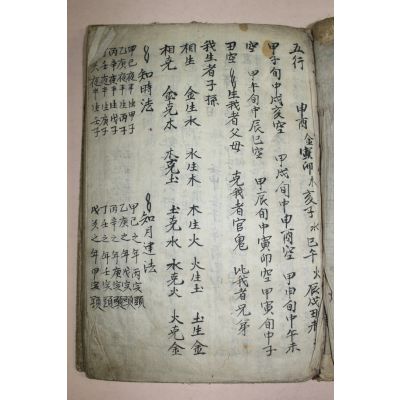 五行 申酉金寅卯木亥子水巳午火辰戌丑未
甲子旬中戌亥空 甲戌旬中申酉空 甲申旬中午未
空 甲午旬中辰巳空 甲辰旬中寅卯空 甲寅旬中子
丑空 生我者父母 克我者官鬼 比我者兄弟
我生者子孫
相生 金生水 水生木 木生火 火生土 土生金
相克 金克木 木克土 土克水 水克火 火克金
知時法 知月建法
甲己夜半生甲子 甲己之年丙寅頭
乙庚夜半生丙子 乙庚之年戊寅頭
丙辛夜半生戊子 丙辛之年庚寅頭
丁壬夜半生庚子 丁壬之年壬寅頭
戊癸夜半生壬子 戊癸之年甲寅頭